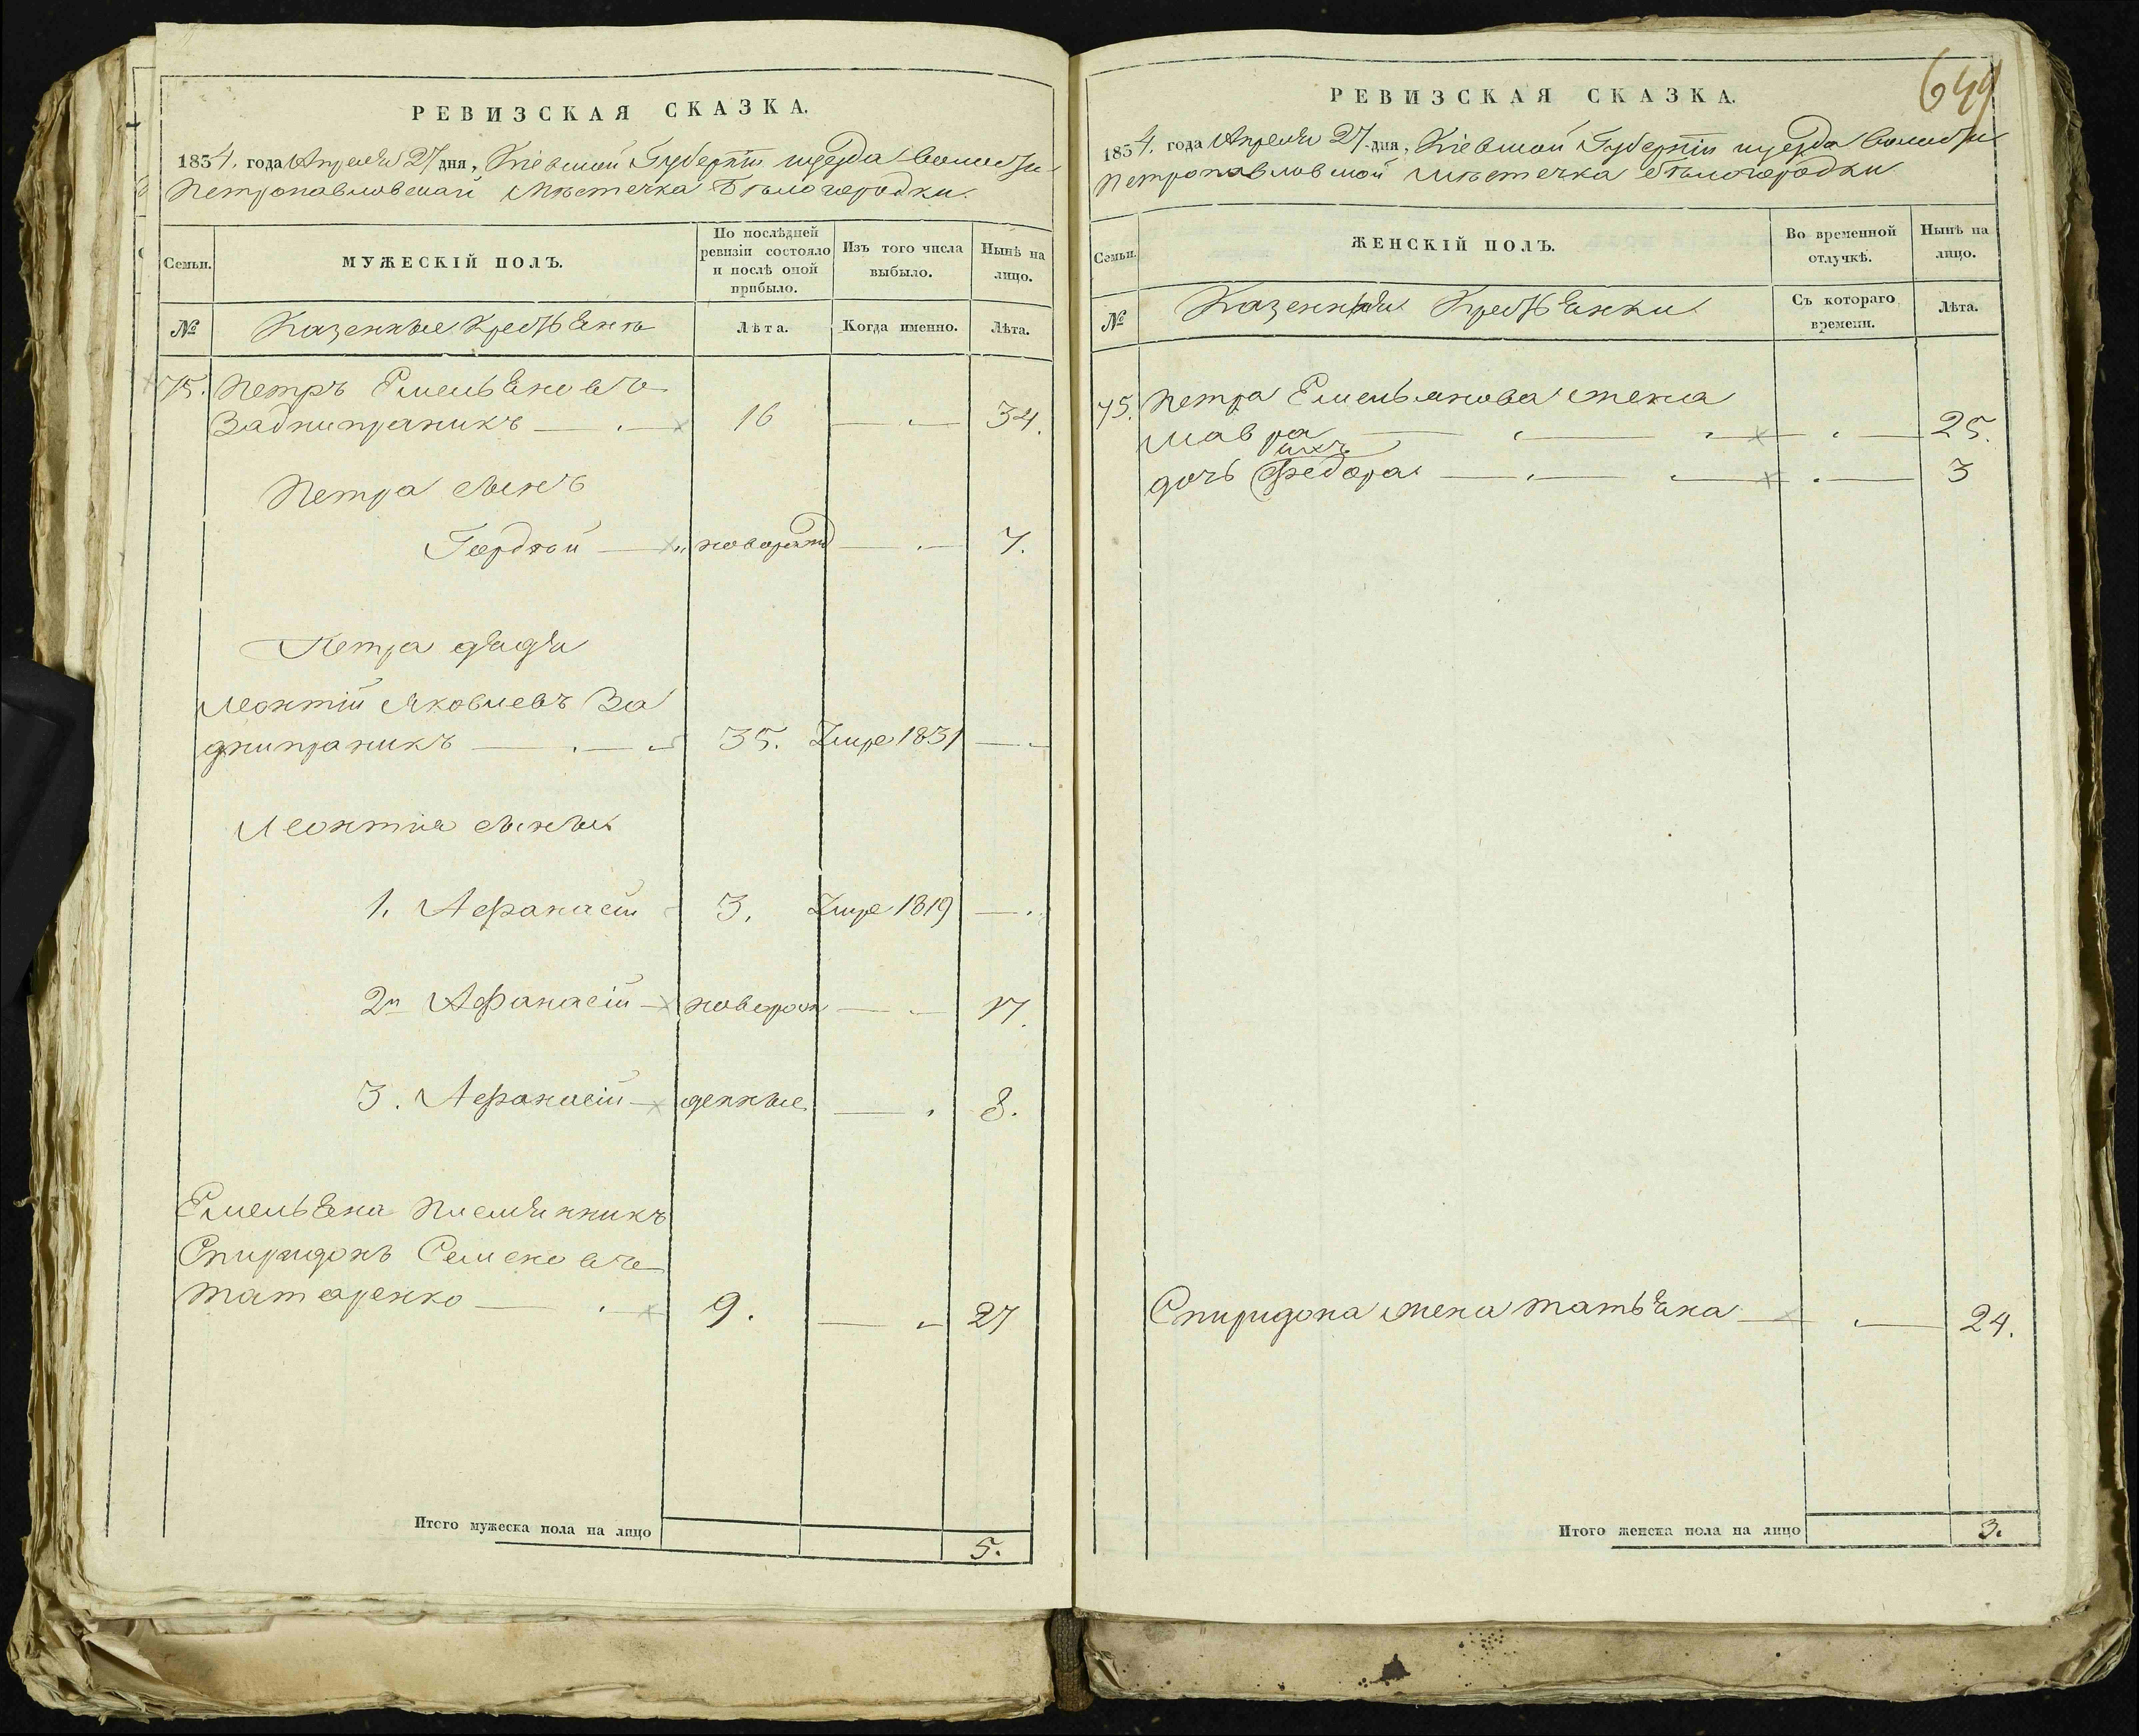 РЕВИЗСКАЯ СКАЗКА.
1834. года Апреля 27 дня, Кіевской Губерніи и уезда волости
Петропавловской Мѣстечка Бѣлогородки.
Семьи.
МУЖЕСКІЙ ПОЛЪ.
По послѣдней ревизіи состояло и послѣ оной прибыло.
Изъ того числа выбыло.
Нынѣ на лицо.
№
Казенные Крестьяне
Лѣта.
Когда именно.
Лѣта.
75. Петръ Емельяновъ
Заднипраникъ 16 34.
Петра сынъ
Гордѣй новорожд 7.
Петра дядя
Леонтій Яковлевъ За
днипраникъ 35. Умре 1831
Леонтія сыны
1. Афанасій 3. Умре 1819
2й Афанасій новорож 17.
3. Афанасій денные 8.
Емельяна племянникъ
Спиридонъ Семеновъ
Татаренко 9. 27
Итого мужеска пола на лицо 5.
649
РЕВИЗСКАЯ СКАЗКА.
1834. года Апреля 27 дня, Кіевской Губерніи и уезда волости
Петропавловской Мѣстечка Бѣлогородки
Семьи.
ЖЕНСКІЙ ПОЛЪ.
Во временной отлучкѣ.
Нынѣ на лицо.
№
Казенныя Крестьянки
Съ котораго времени.
Лѣта.
75. Петра Емельянова жена
Мавра 25.
ихъ
дочь Федора 3
Спиридона жена Татьяна 24.
Итого женска пола на лицо 3.